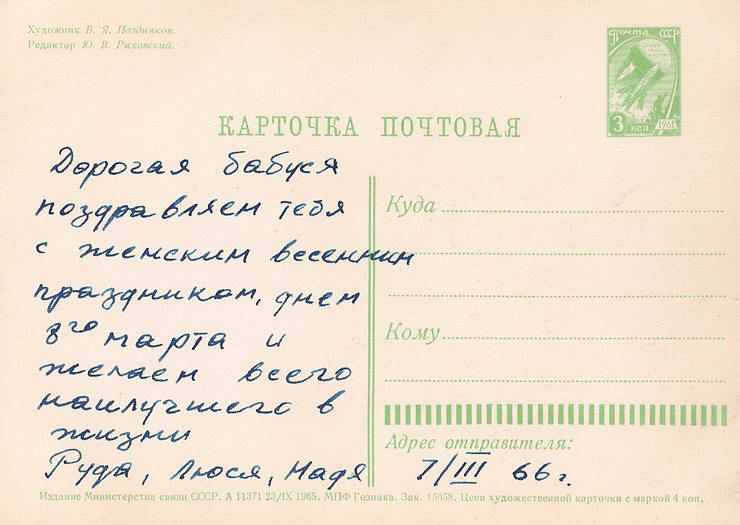 Художник В. Я. Поздняков.
Редактор Ю. В. Ряховский.
Почта СССР
3 коп
1961
КАРТОЧКА ПОЧТОВАЯ
Дорогая бабуся
поздравляем тебя
с женским весенним
праздником, днем
8го марта и
желаем всего
наилучшего в
жизни
Руда, Люся, Надя
Куда
Кому
Адрес отправителя:
7/III 66 г.
Издание Министерства связи СССР. А 11371 23/IX 1965. МПФ Гознака. Зак. Цена художественной карточки с маркой 4 коп.